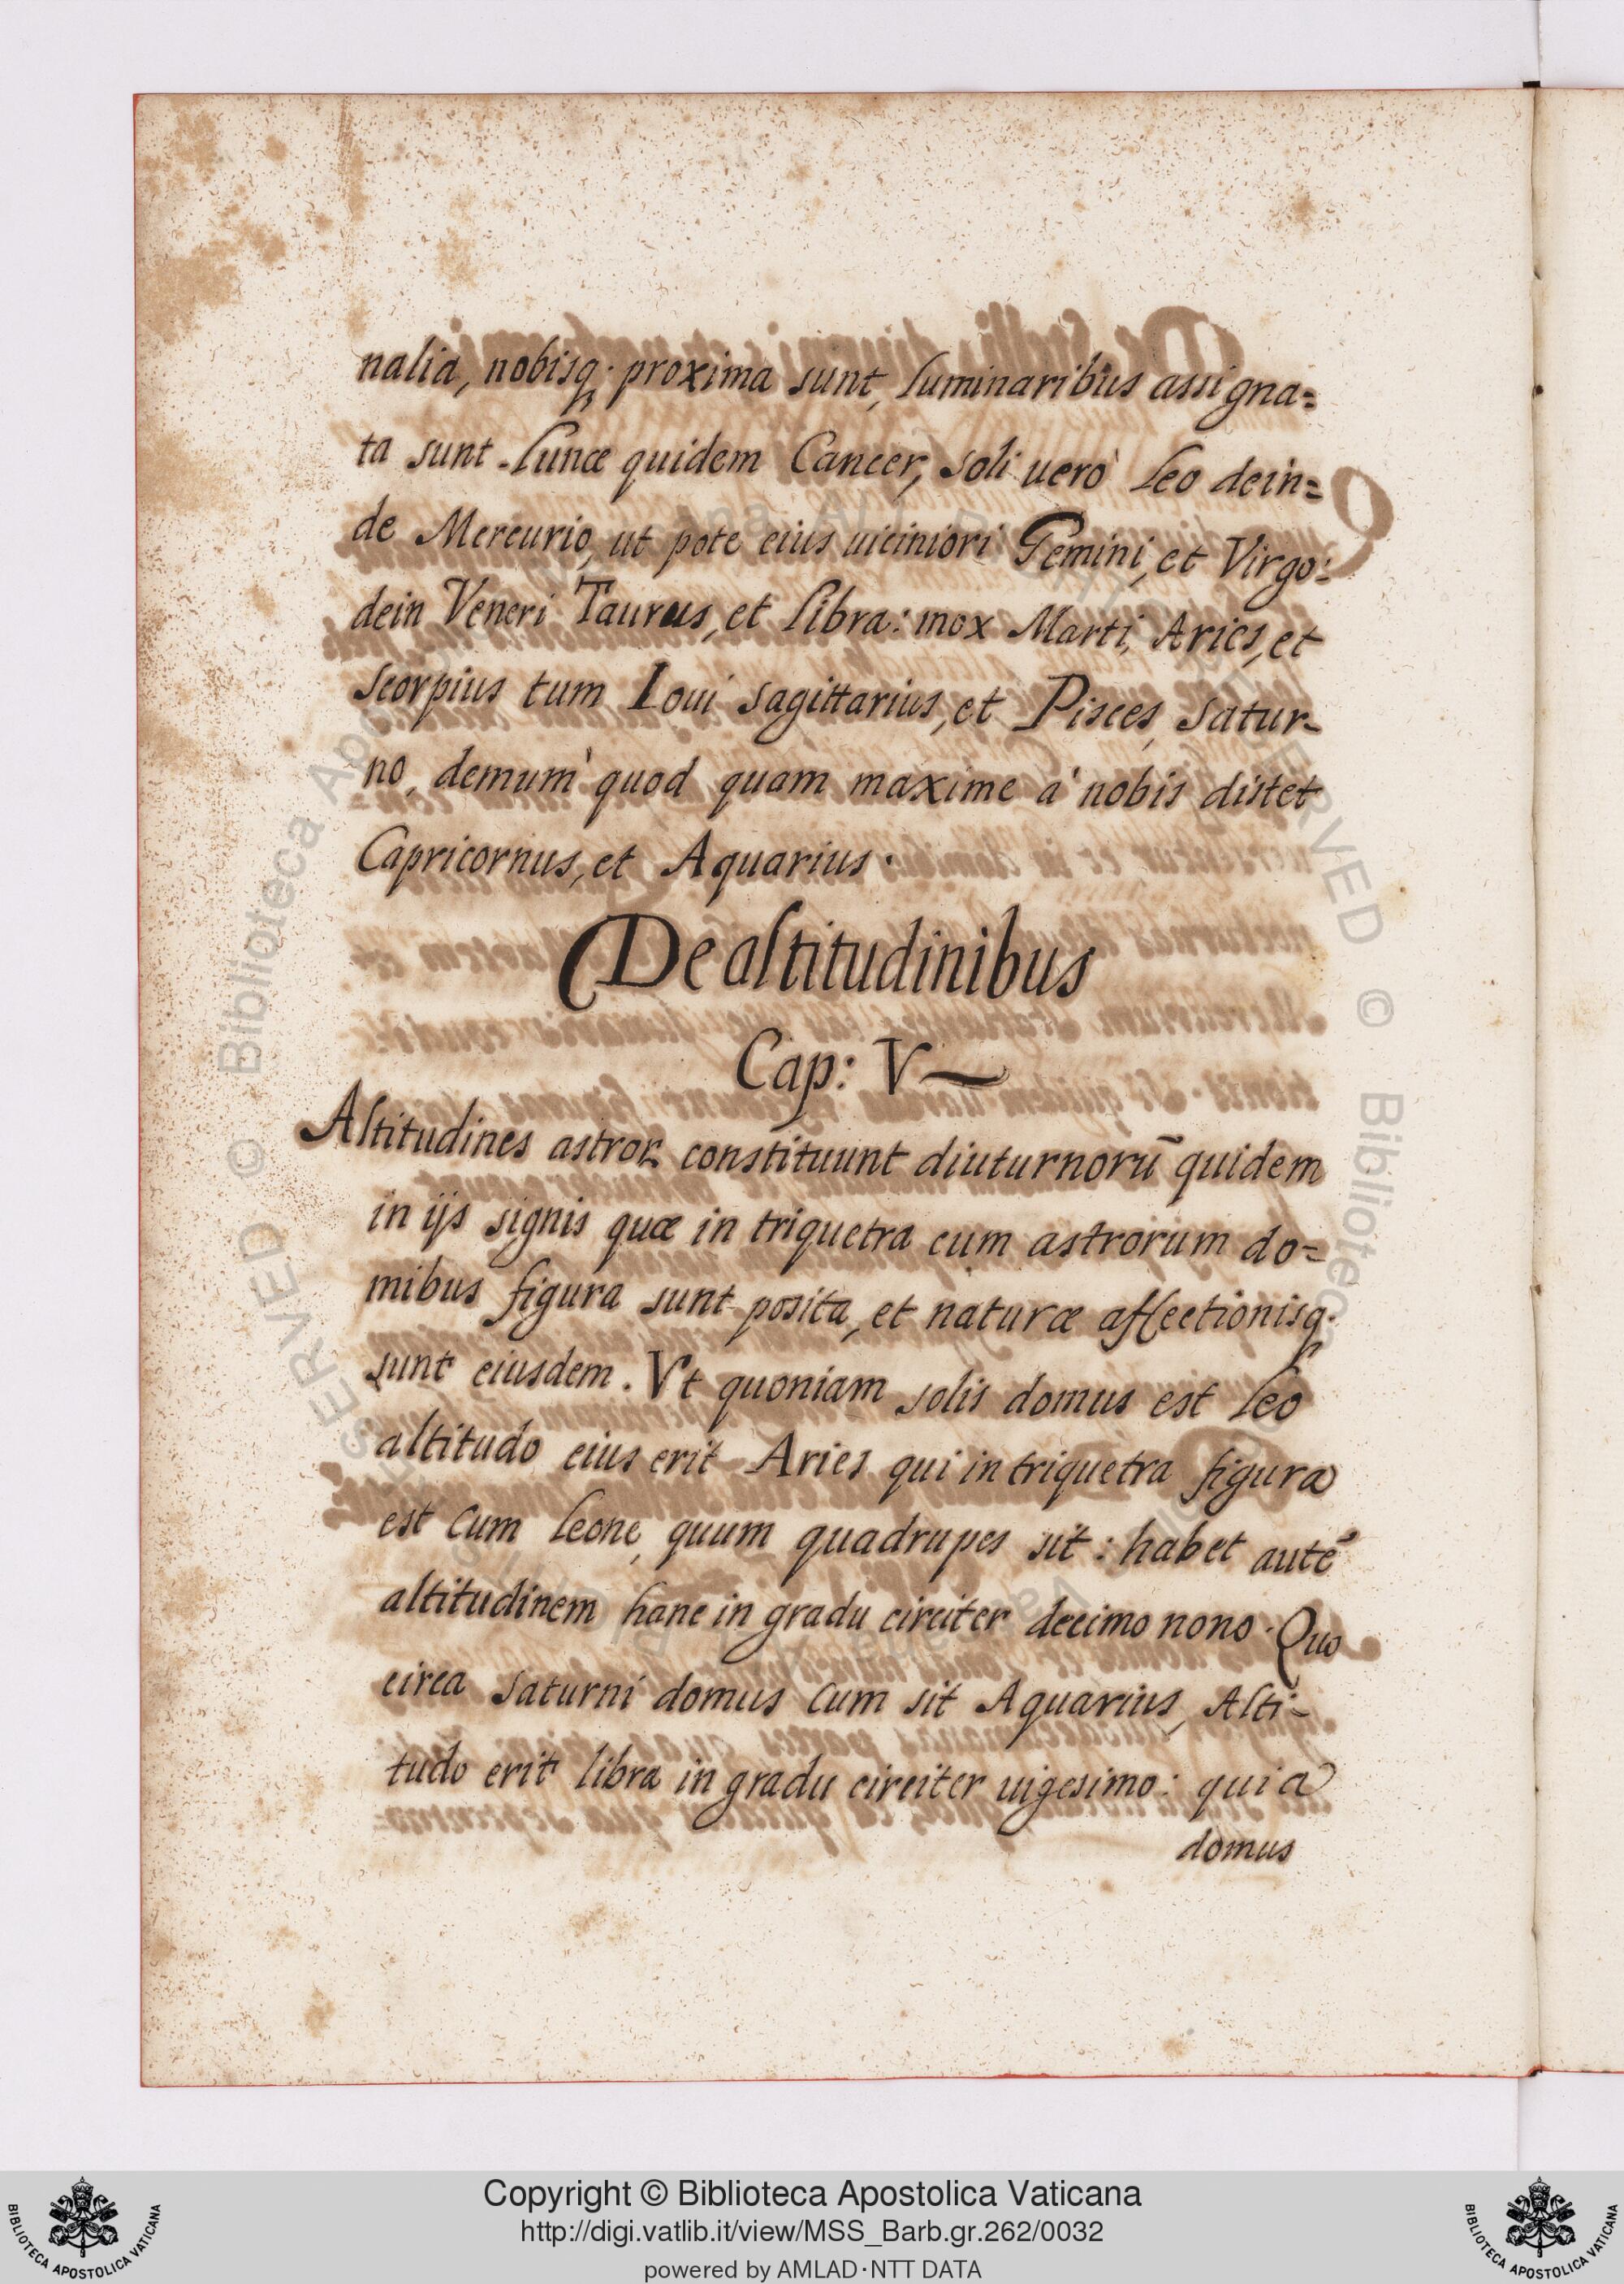 nalia, nobisq; proxima sunt, luminaribus assigna=
ta sunt. Lunæ quidem Cancer, soli uerò Leo dein=
de Mercurio, ut pote eius uiciniori Gemini, et Virgo:
dein Veneri Taurus, et Libra: mox Marti, Aries, et
scorpius tum Ioui sagittarius, et Pisces, Satur-
no, demum quod quam maxime à nobis distet
Capricornus, et Aquarius.
De altitudinibus
Cap: V
Altitudines astroꝝ constituunt diuturnorū quidem
in ijs signis quæ in triquetra cum astrorum do=
mibus figura sunt posita, et naturæ affectionisq;
sunt eiusdem. Vt quoniam solis domus est Leo
altitudo eius erit Aries qui in triquetra figura
est cum Leone, quum quadrupes sit: habet autē
altitudinem hanc in gradu circiter decimo nono. Quo
circa saturni domus cum sit Aquarius, Alti-
tudo erit libra in gradu circiter uigesimo: quia
domus
Copyright © Biblioteca Apostolica Vaticana
http://digi.vatlib.it/view/MSS_Barb.gr.262/0032
powered by AMLAD·NTT DATA
BIBLIOTECA APOSTOLICA VATICANA
BIBLIOTECA APOSTOLICA VATICANA